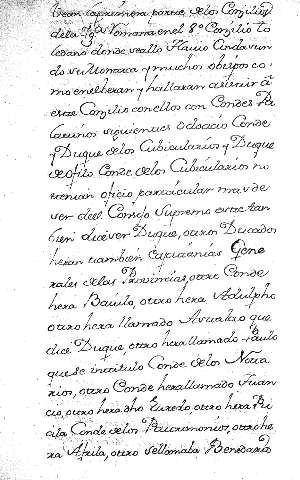 vean la primera parte delos Conzilios
dela Ygª Romana en el 8º Conzilio to
ledano donde se allo Flauio Cindasuin
do su Monarca y muchos obispos co
mo en el heran y hallaran asistir à
este Conzilio con ellos con Condes Pa
latinos siguientes Odoacio Conde
y Duque delos Cubicularios y Duque
de ofilo Conde delos Cubicularios no
tenian oficio particular mas de
ser del Consejo Supremo este tan
bien dice ser Duque, otros Ducados
heran tambien Capitanias Gene
rales delas Provincias, otro Conde
hera Bauilo, otro hera Adulpho
otro hera llamado Asualio que
dice Duque, otro hera llamado Paulo
que se intitulo Conde delos Nota
rios, otro Conde hera llamado Juan
cio, otro hera dho Euredo, otro hera Ri
cila Conde delos Patrimonios, otro he
ra Afila, otro se llamaba Benedario